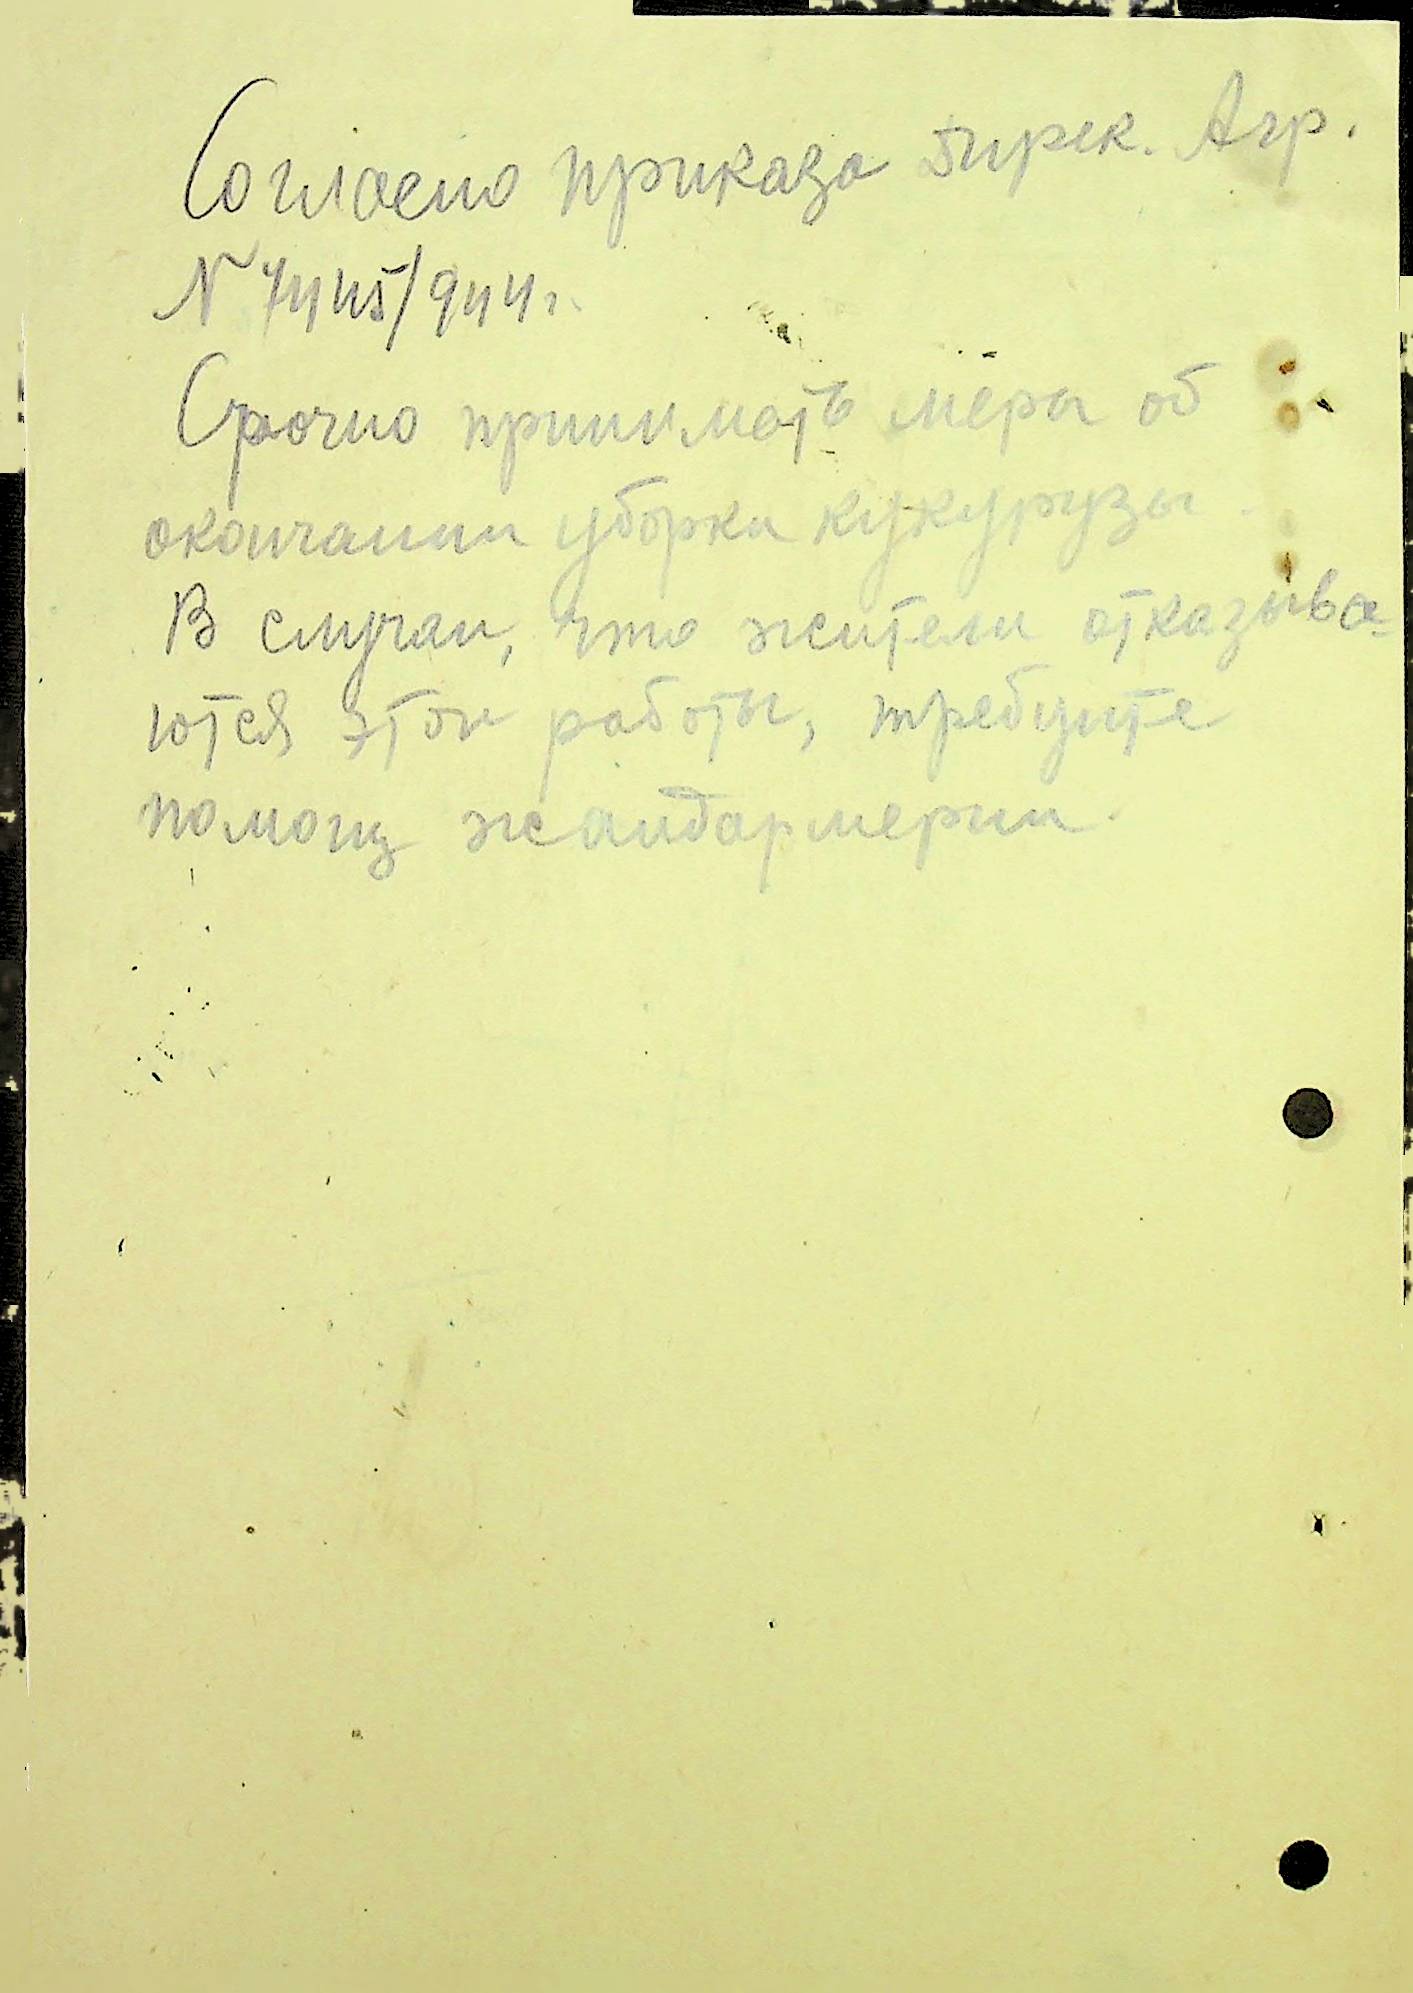 Согласно приказа Дирек. Агр.
N 7445/944г.
Срочно принимать меры об
окончании уборки кукурузы.
В случаи, что жители отказыва-
ются этои работы, требуите
помощ жандармерии.